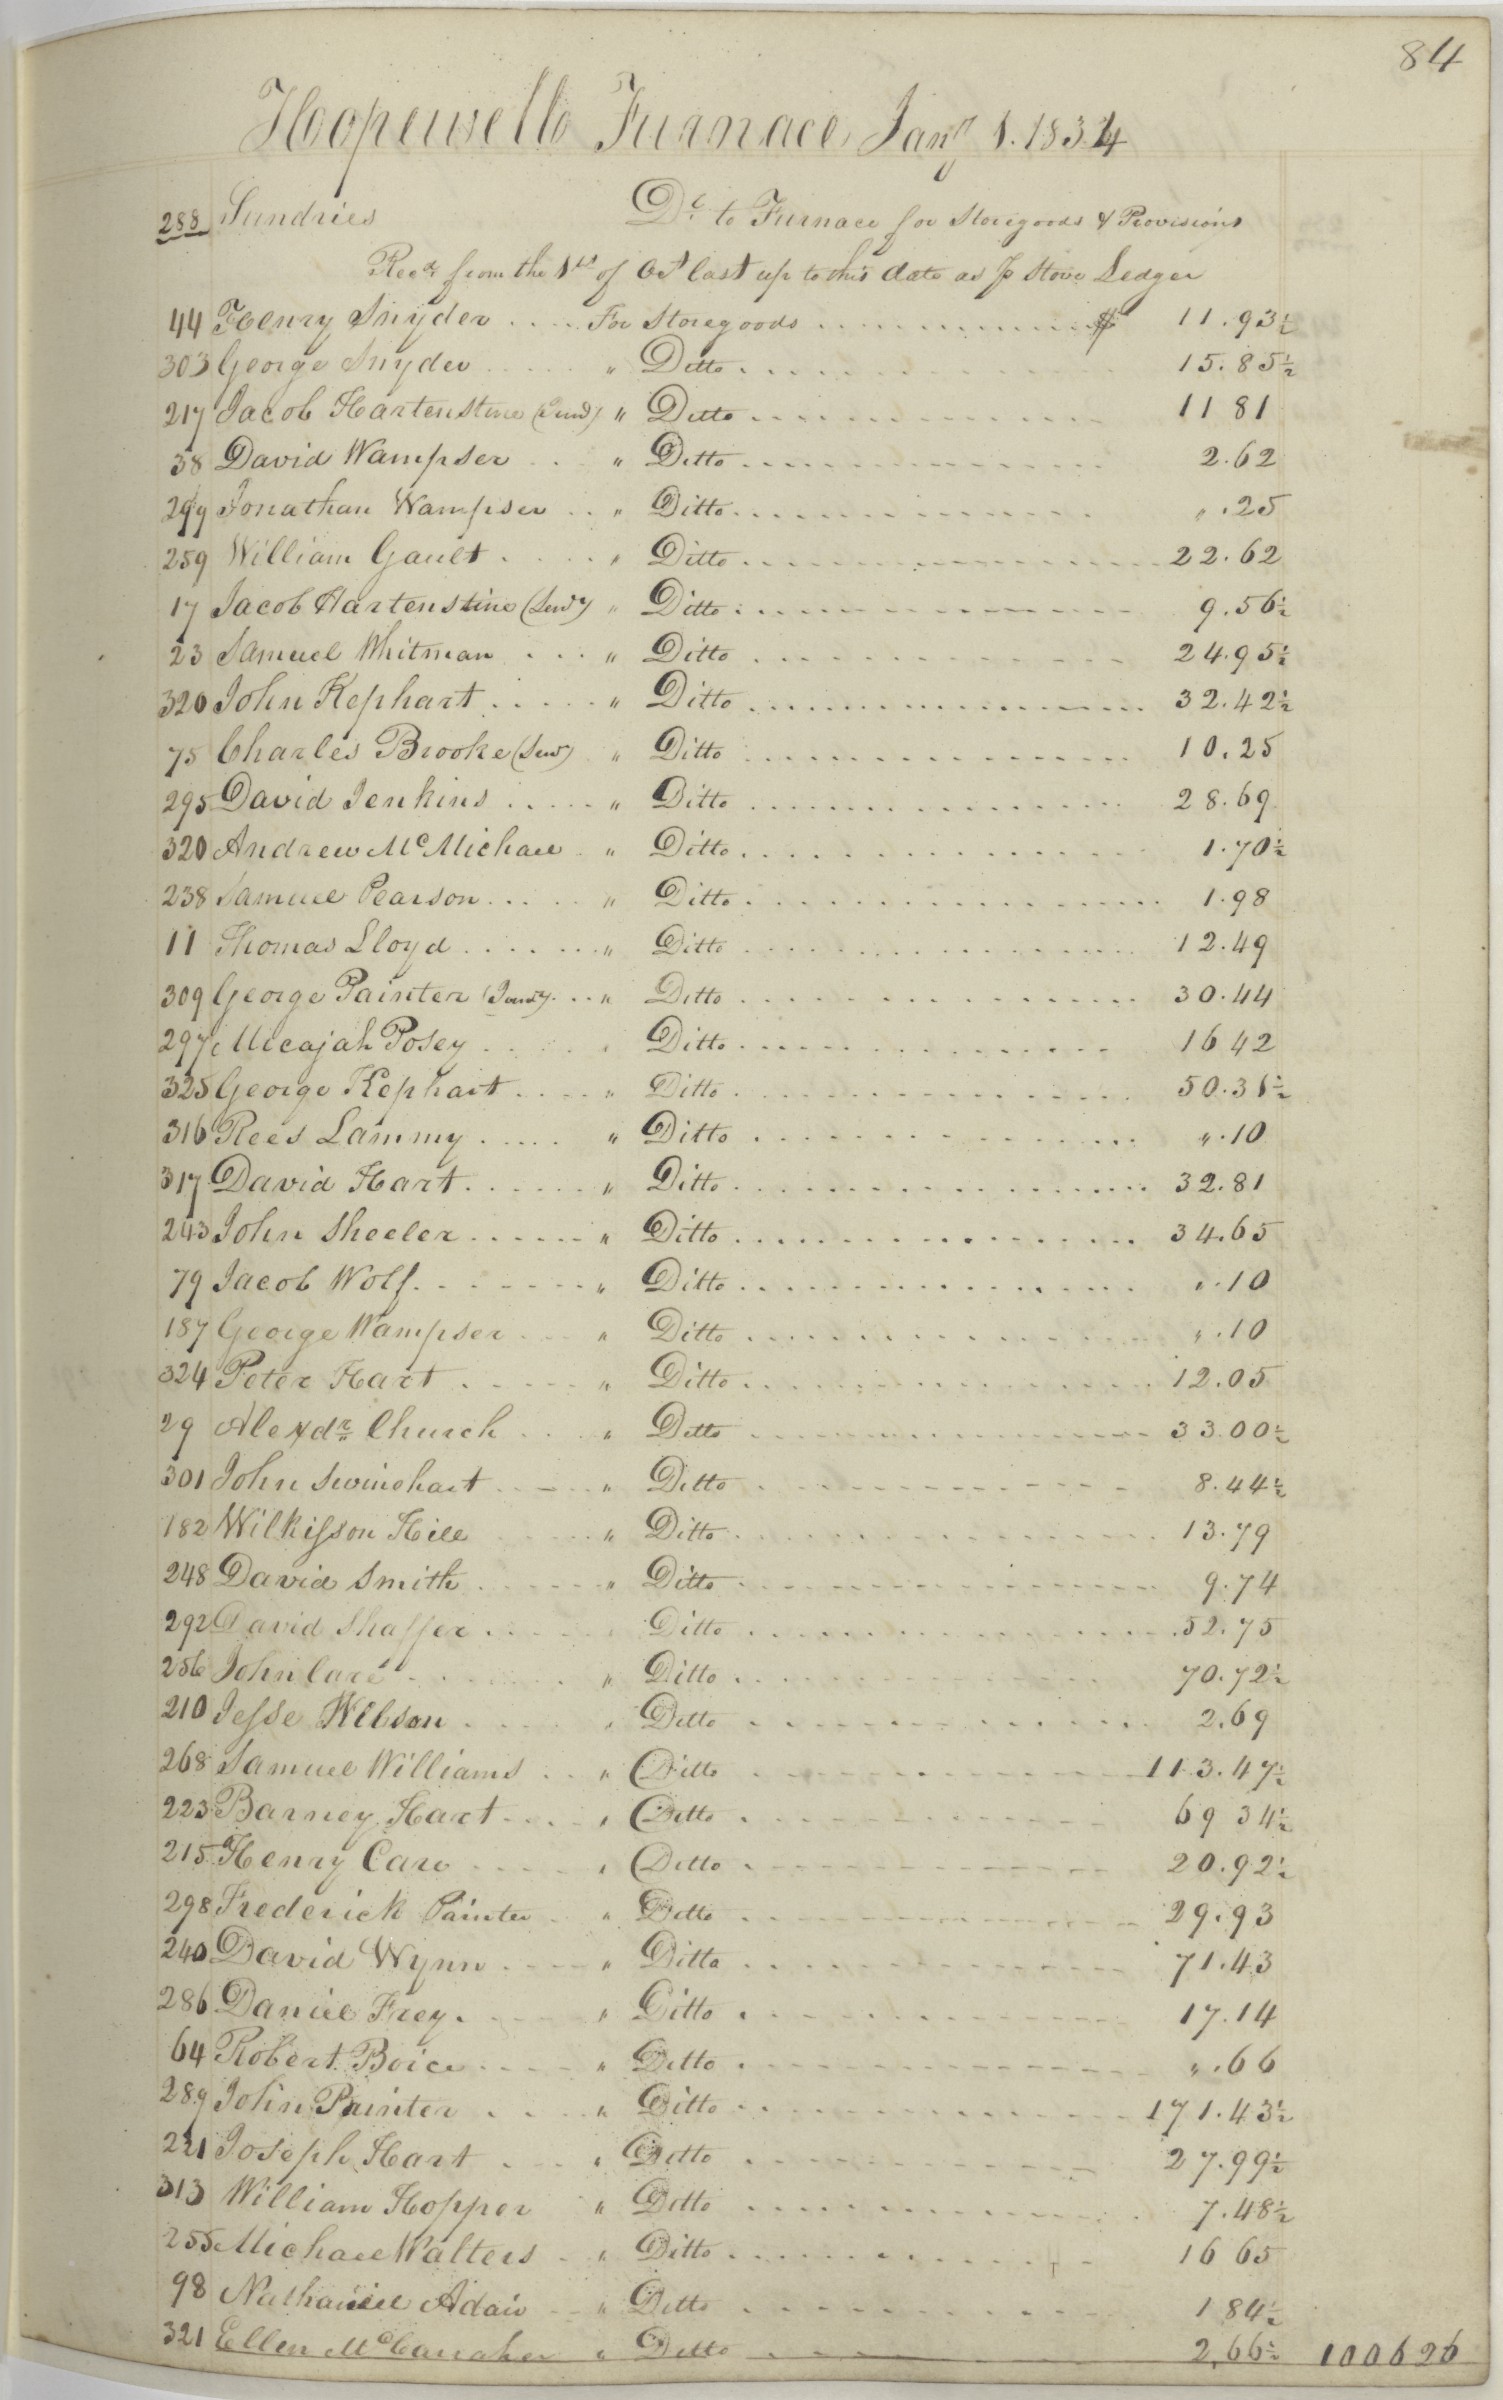 84
Hopewell Furnace Jany 1. 1834
288 Sundries Dr. to Furnace for Storegoods & Provisions
Recd. from the 1st of Oct last up to this date as P Store Ledger
44 Henry Snyder .... For Storegoods ............ $ 11.93½
303 George Snyder .... " Ditto ............ 15.85½
217 Jacob Hartenstine " Ditto ............ 11 81
38 David Wampser .. " Ditto ............ 2.62
299 Jonathan Wampser .. " Ditto ............ " .25
259 William Gault .... " Ditto ............ 22.62
17 Jacob Hartenstine " Ditto ............ 9.56½
23 Samuel Whitman ... " Ditto ............ 24.95½
320 John Kephart ..... " Ditto ............ 32.42½
75 Charles Brooke " Ditto ............ 10.25
295 David Jenkins ..... " Ditto ............ 28.69
320 Andrew McMichael . " Ditto ............ 1.70½
238 Samuel Pearson .... " Ditto ............ 1.98
11 Thomas Lloyd ...... " Ditto ............ 12.49
309 George Painter ... " Ditto ............ 30.44
297 Micajah Posey .... " Ditto ............ 16 42
325 George Kephart .... " Ditto ............ 50.31½
316 Rees Lammy ..... " Ditto ............ " .10
317 David Hart ...... " Ditto ............ 32.81
243 John Sheeler ...... " Ditto ............ 34.65
79 Jacob Wolf ....... " Ditto ............ " .10
187 George Wampser ... " Ditto ............ " .10
324 Peter Hart ..... " Ditto ............ 12.05
29 Alexdr. Church .... " Ditto ............ 33.00½
301 John Swinehart .... " Ditto ............ 8.44½
182 Wilkisson Hill .... " Ditto ............ 13.79
248 David Smith ..... " Ditto ............ 9.74
292 David Shaffer ..... " Ditto ............ 52.75
256 John Care ...... " Ditto ............ 70.72½
210 Jesse Wilson ..... " Ditto ............ 2.69
268 Samuel Williams .. " Ditto ............ 113.47½
223 Barney Hart .... " Ditto ............ 69 34½
215 Henry Care ..... " Ditto ............ 20.92½
298 Frederick Painter . " Ditto ............ 29.93
240 David Wynn .... " Ditto ............ 71.43
286 Daniel Frey ..... " Ditto ............ 17.14
64 Robert Boice .... " Ditto ............ " .66
289 John Painter .... " Ditto ............ 171.43½
221 Joseph Hart .... " Ditto ............ 27.99½
313 William Hopper " Ditto ............ 7.48½
255 Michael Walters . " Ditto ............ 16 65
98 Nathaniel Adair .. " Ditto ............ 1 84½
321 Ellen McCanaher " Ditto ............ 2,66½ 1006 26